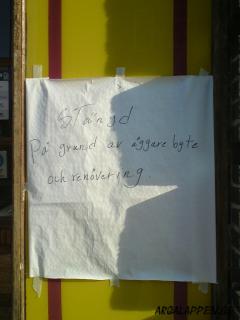 Stängd
På grund av äggare byte
och renovering
ARGALAPPEN.SE